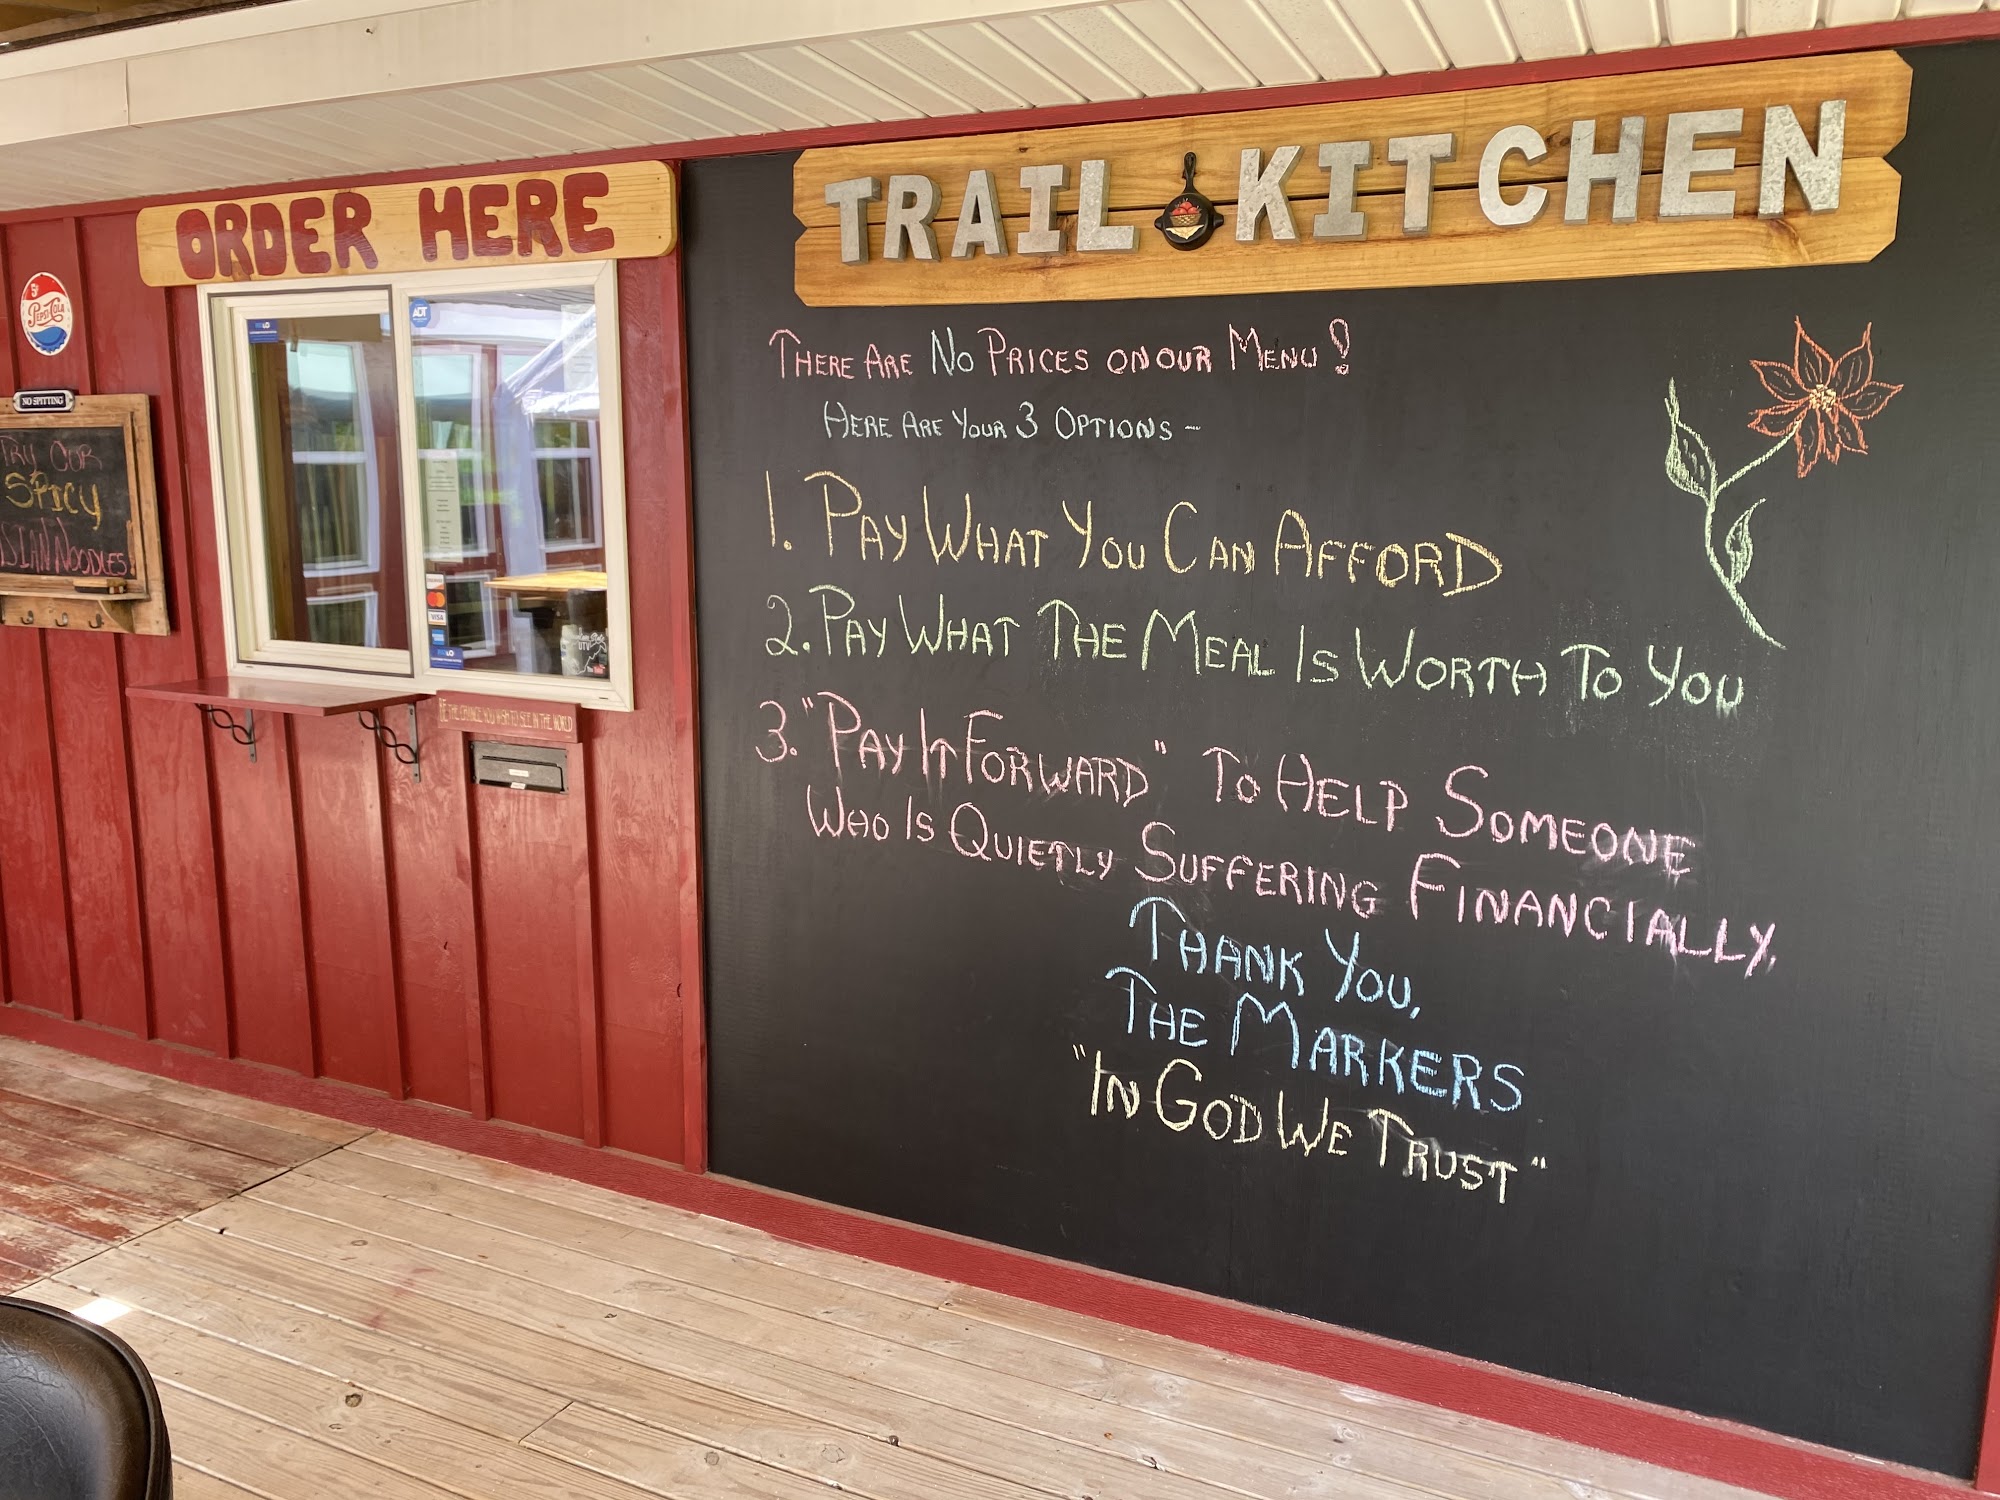 ORDER HERE
5¢
PEPSI-COLA
NO SPITTING
TRY OUR
SPICY
ASIAN NOODLES!
ADT
VISA
BE THE CHANGE YOU WISH TO SEE IN THE WORLD
TRAIL KITCHEN
THERE ARE NO PRICES ON OUR MENU!
HERE ARE YOUR 3 OPTIONS -
1. PAY WHAT YOU CAN AFFORD
2. PAY WHAT THE MEAL IS WORTH TO YOU
3. "PAY IT FORWARD" TO HELP SOMEONE
WHO IS QUIETLY SUFFERING FINANCIALLY.
THANK YOU,
THE MARKERS
"IN GOD WE TRUST"